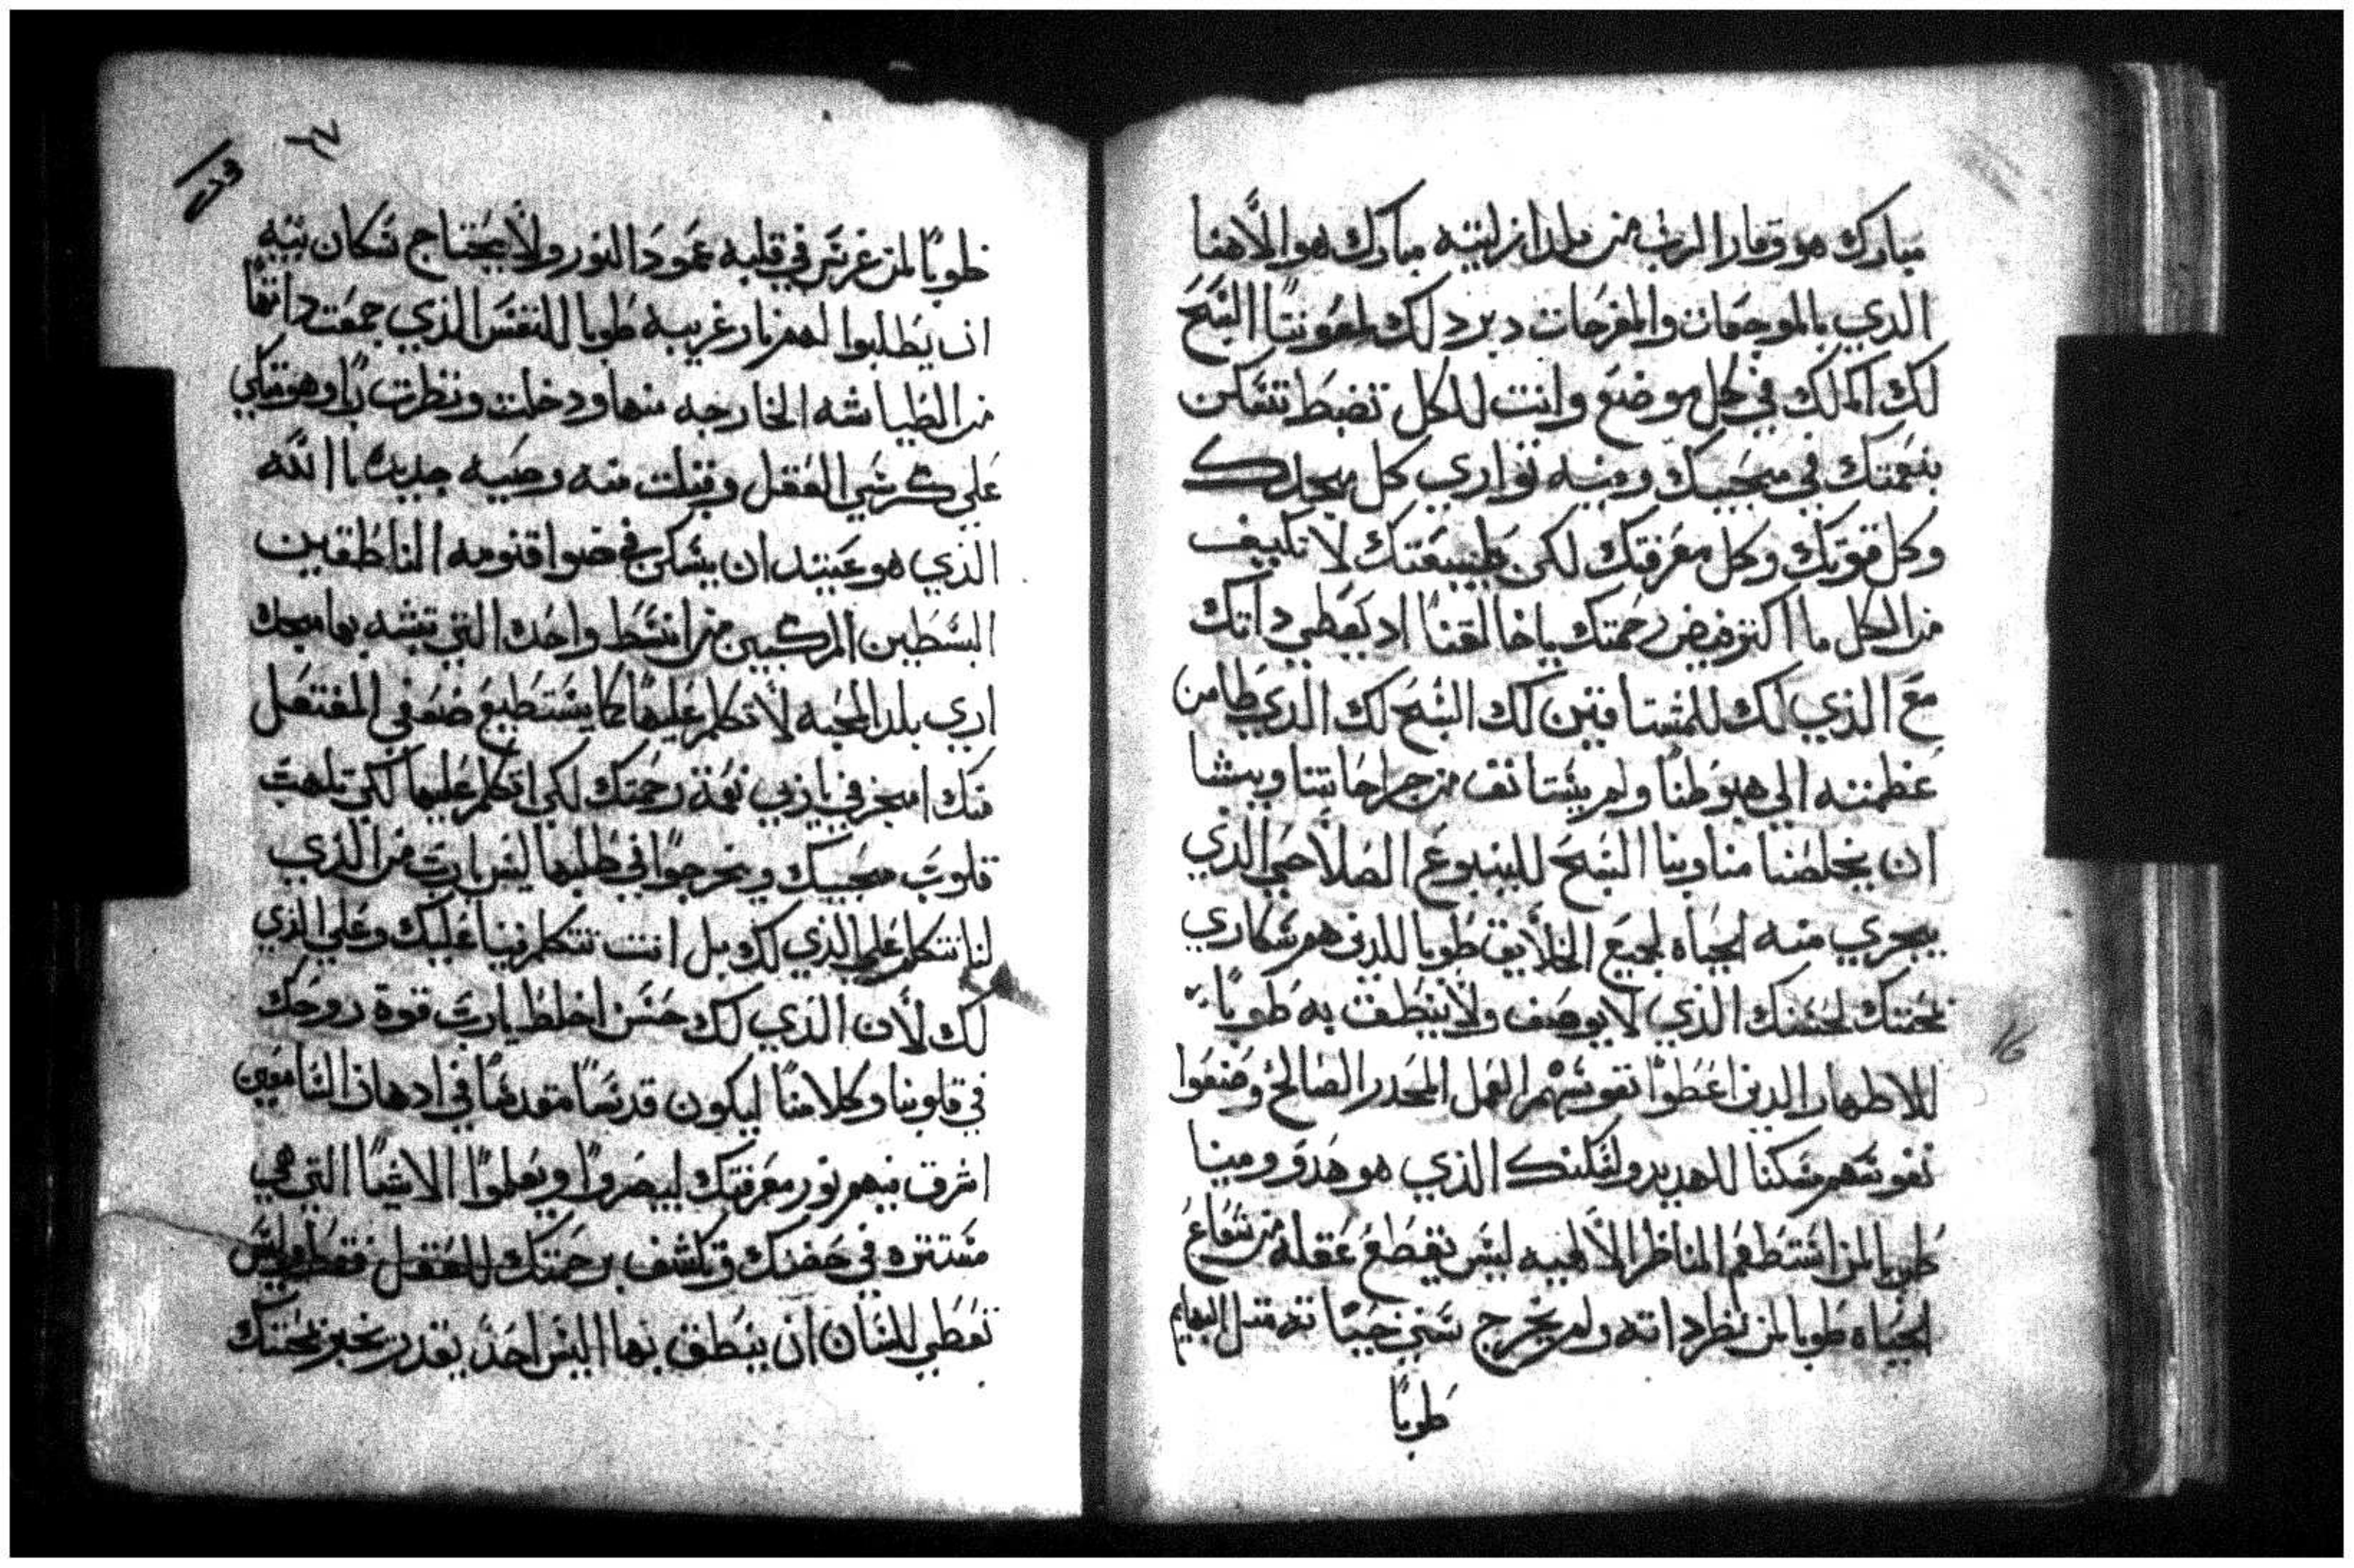 مبارك هو وقار الرب من بلد ازليته مبارك هو الاهنا
الذي بالموجعات والمفرحات دبر ذلك لمعونتنا السبح
لك الملك في كل موضع وانت للكل تضبط تتمكن
بنعمتك في محبيك ومنه تواري كل مجدك
وكل قوتك وكل معرفتك لكن بطبيعتك لا تكييف
من الكل ما اكتر فيض رحمتك ياخالقنا اد يعطي داتك
مع الذي لك للمشتاقين لك السبح لك الذي طامن
عظمته الي هبوطنا ولم يستانف من جراحاتنا ويشا
ان يخلصنا مناوبنا السبح للينبوع الصلاحي الذي
يجري منه الحياه لجميع الخلايق طوبا للدين هم سكاري
بمحبتك لحسنك الذي لا يوصف ولا ينطق به طوباً
للاطهار الدين اعطوا نفوسهم العمل المحدر الصالح وصنعوا
نفوسهم مسكنا للهديد ولسكنك الذي هو هدو ومينا
طوبا لمن استطعم المناظر الالهيه ليس تقطع عقله من شعاع
الحياه طوبا لمن نظر داته ولم يخرج سني حياته متل البهايم
طوباً
طوباً لمن غرس في قلبه عمود النور ولا يحتاج سكان بيته
ان يطلبوا لهم نار غريبه طوبا للنفس الذي جمعت داتها
من الطياشه الخارجه منها ودخلت ونظرت ربها وهو متكي
علي كرسي العقل وقبلت منه وصيه جديده يا الله
الذي هو عتيد ان يسكن في ضوا قنومه الناطقين
البسطين المركبين من انبسط واحده التي تشبه بها مجدك
اري بلد المحبه لا تكلم عليها كما يستطيع ضعفي المفتعل
منك امنحني يا ربي نعمة رحمتك لكي اتكلم عليها لكي تلهب
قلوب محبيك ويخرجوا في طلبها ليس يارب من الذي
لنا نتكلم علي الذي لك بل انت تتكلم فينا عليك وعلي الذي
لك لان الذي لك حسن اخلط يارب قوة روحك
في قلوبنا وكلامنا ليكون قدسًا مقدسًا في ادهان السامعين
اشرق فيهم نور معرفتك ليبصروا ويعلموا الاشيا التي هي
مستتره في حضنك وتكشف برحمتك للعقل فقط وليس
تعطي للسان ان ينطق بها اليس احد يقدر يخبر بمحبتك